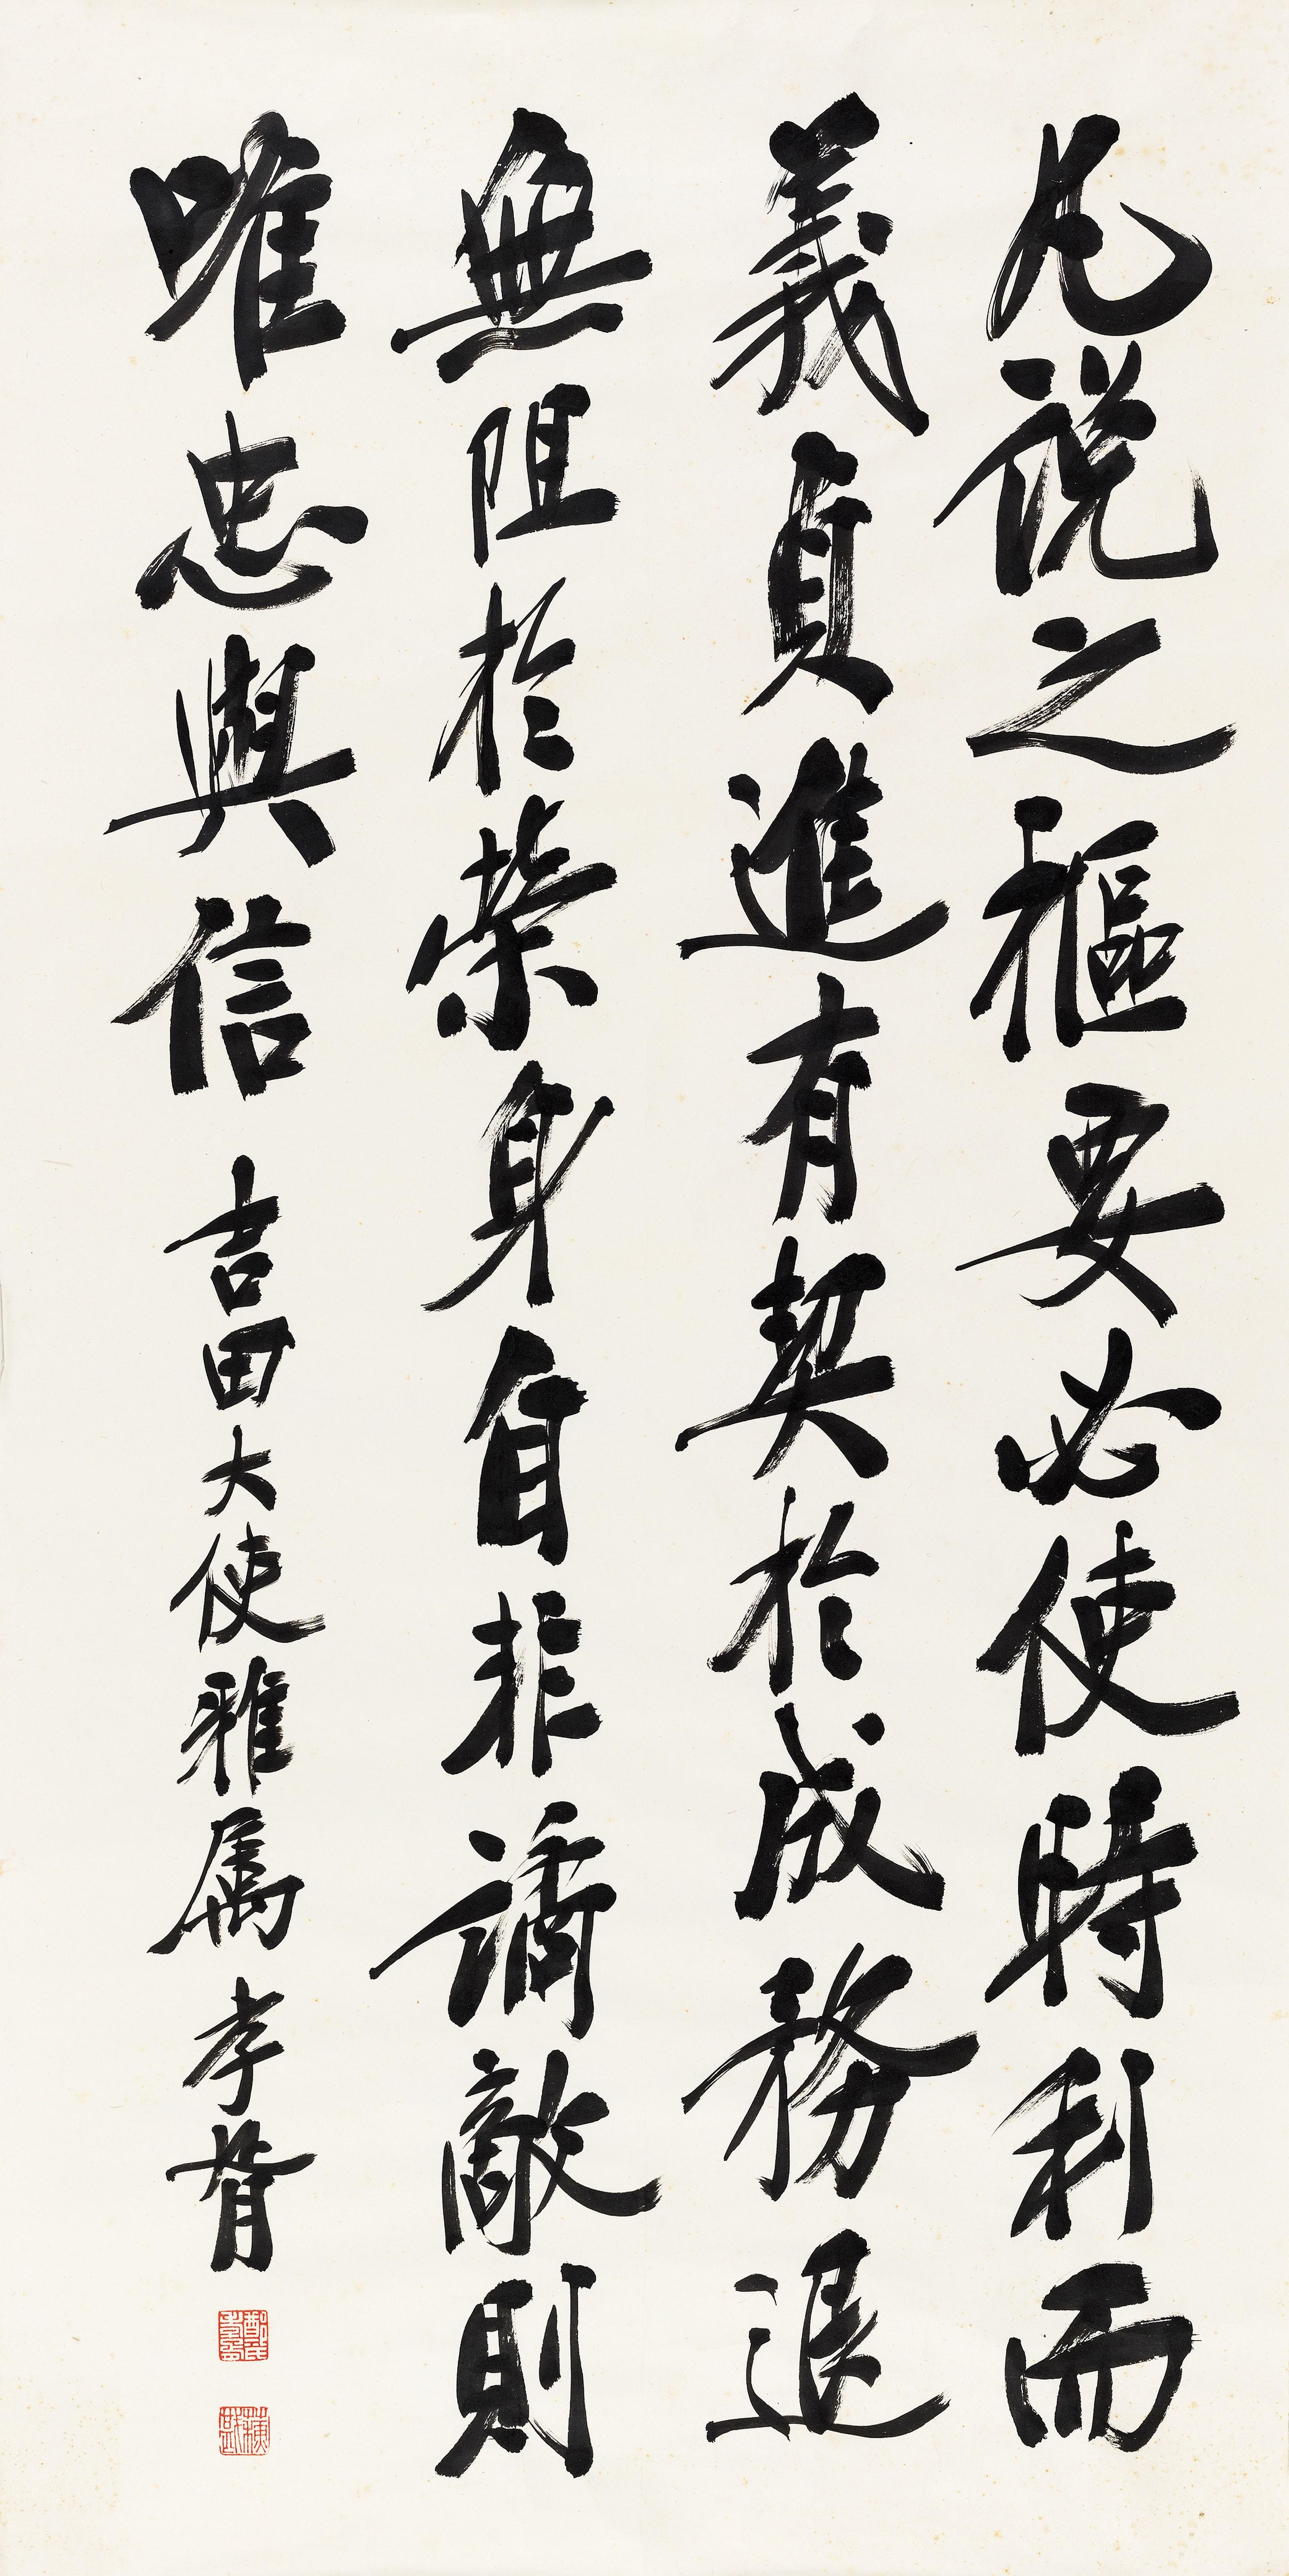 凡說之樞要必使時利而
義貞進有契於成務退
無阻於榮身自非譎敵則
唯忠與信 吉田大使雅屬 孝胥